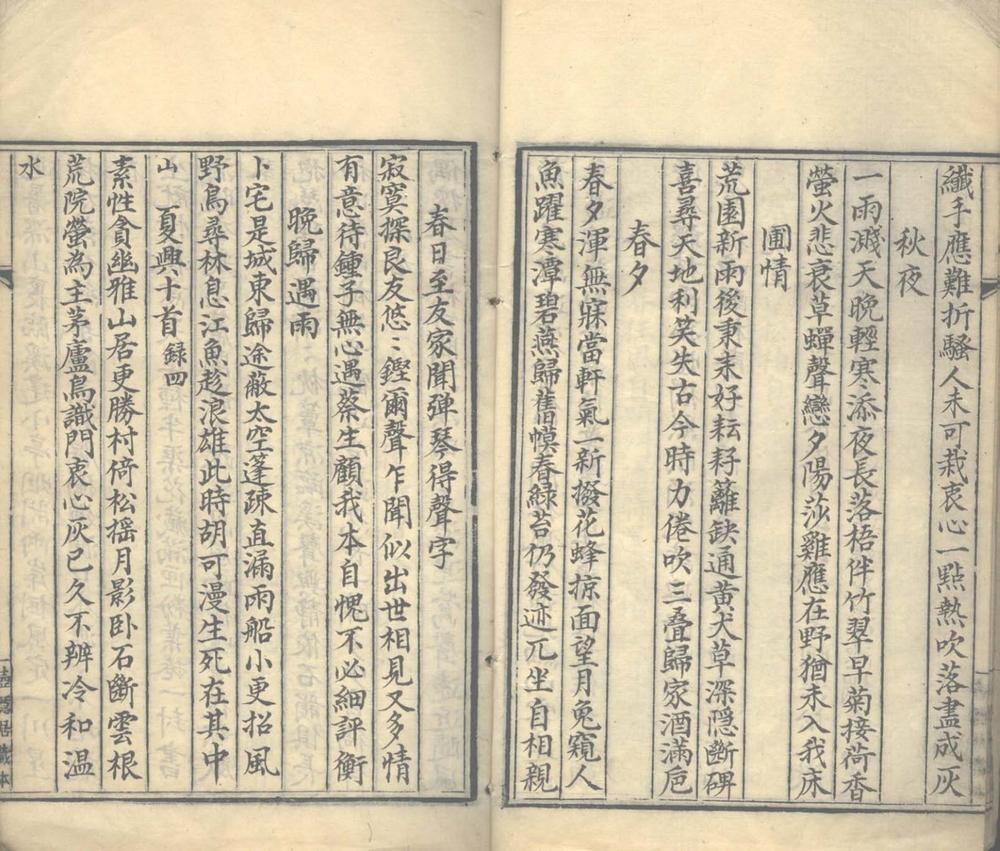 纖手應難折騷人未可栽衷心一點熱吹落盡成灰
秋夜
一雨濺天晚輕寒添夜長落梧伴竹翠早菊接荷香
螢火悲衰草蟬聲戀夕陽莎雞應在野猶未入我床
圃情
荒園新雨後秉耒好耘耔籬缺通黃犬草深隱斷碑
喜尋天地利笑失古今時力倦吹三疊歸家酒滿卮
春夕
春夕渾無寐當軒氣一新撥花蜂掠面望月兔窺人
魚躍寒潭碧燕歸舊幙春綠苔仍發迹兀坐自相親
春日至友家聞弹琴得聲字
寂寞探良友悠〻鏗爾聲乍聞似出世相見又多情
有意待鍾子無心遇蔡生顧我本自愧不必細評衡
晚歸遇雨
卜宅是城東歸途蔽太空篷疎直漏雨船小更招風
野鳥尋林息江魚趁浪雄此時胡可漫生死在其中
山 夏興十首錄四
素性貪幽雅山居更勝村倚松搖月影卧石斷雲根
荒院螢為主茅廬鳥識門衷心灰已久不辨冷和溫
水
壺隱居藏本